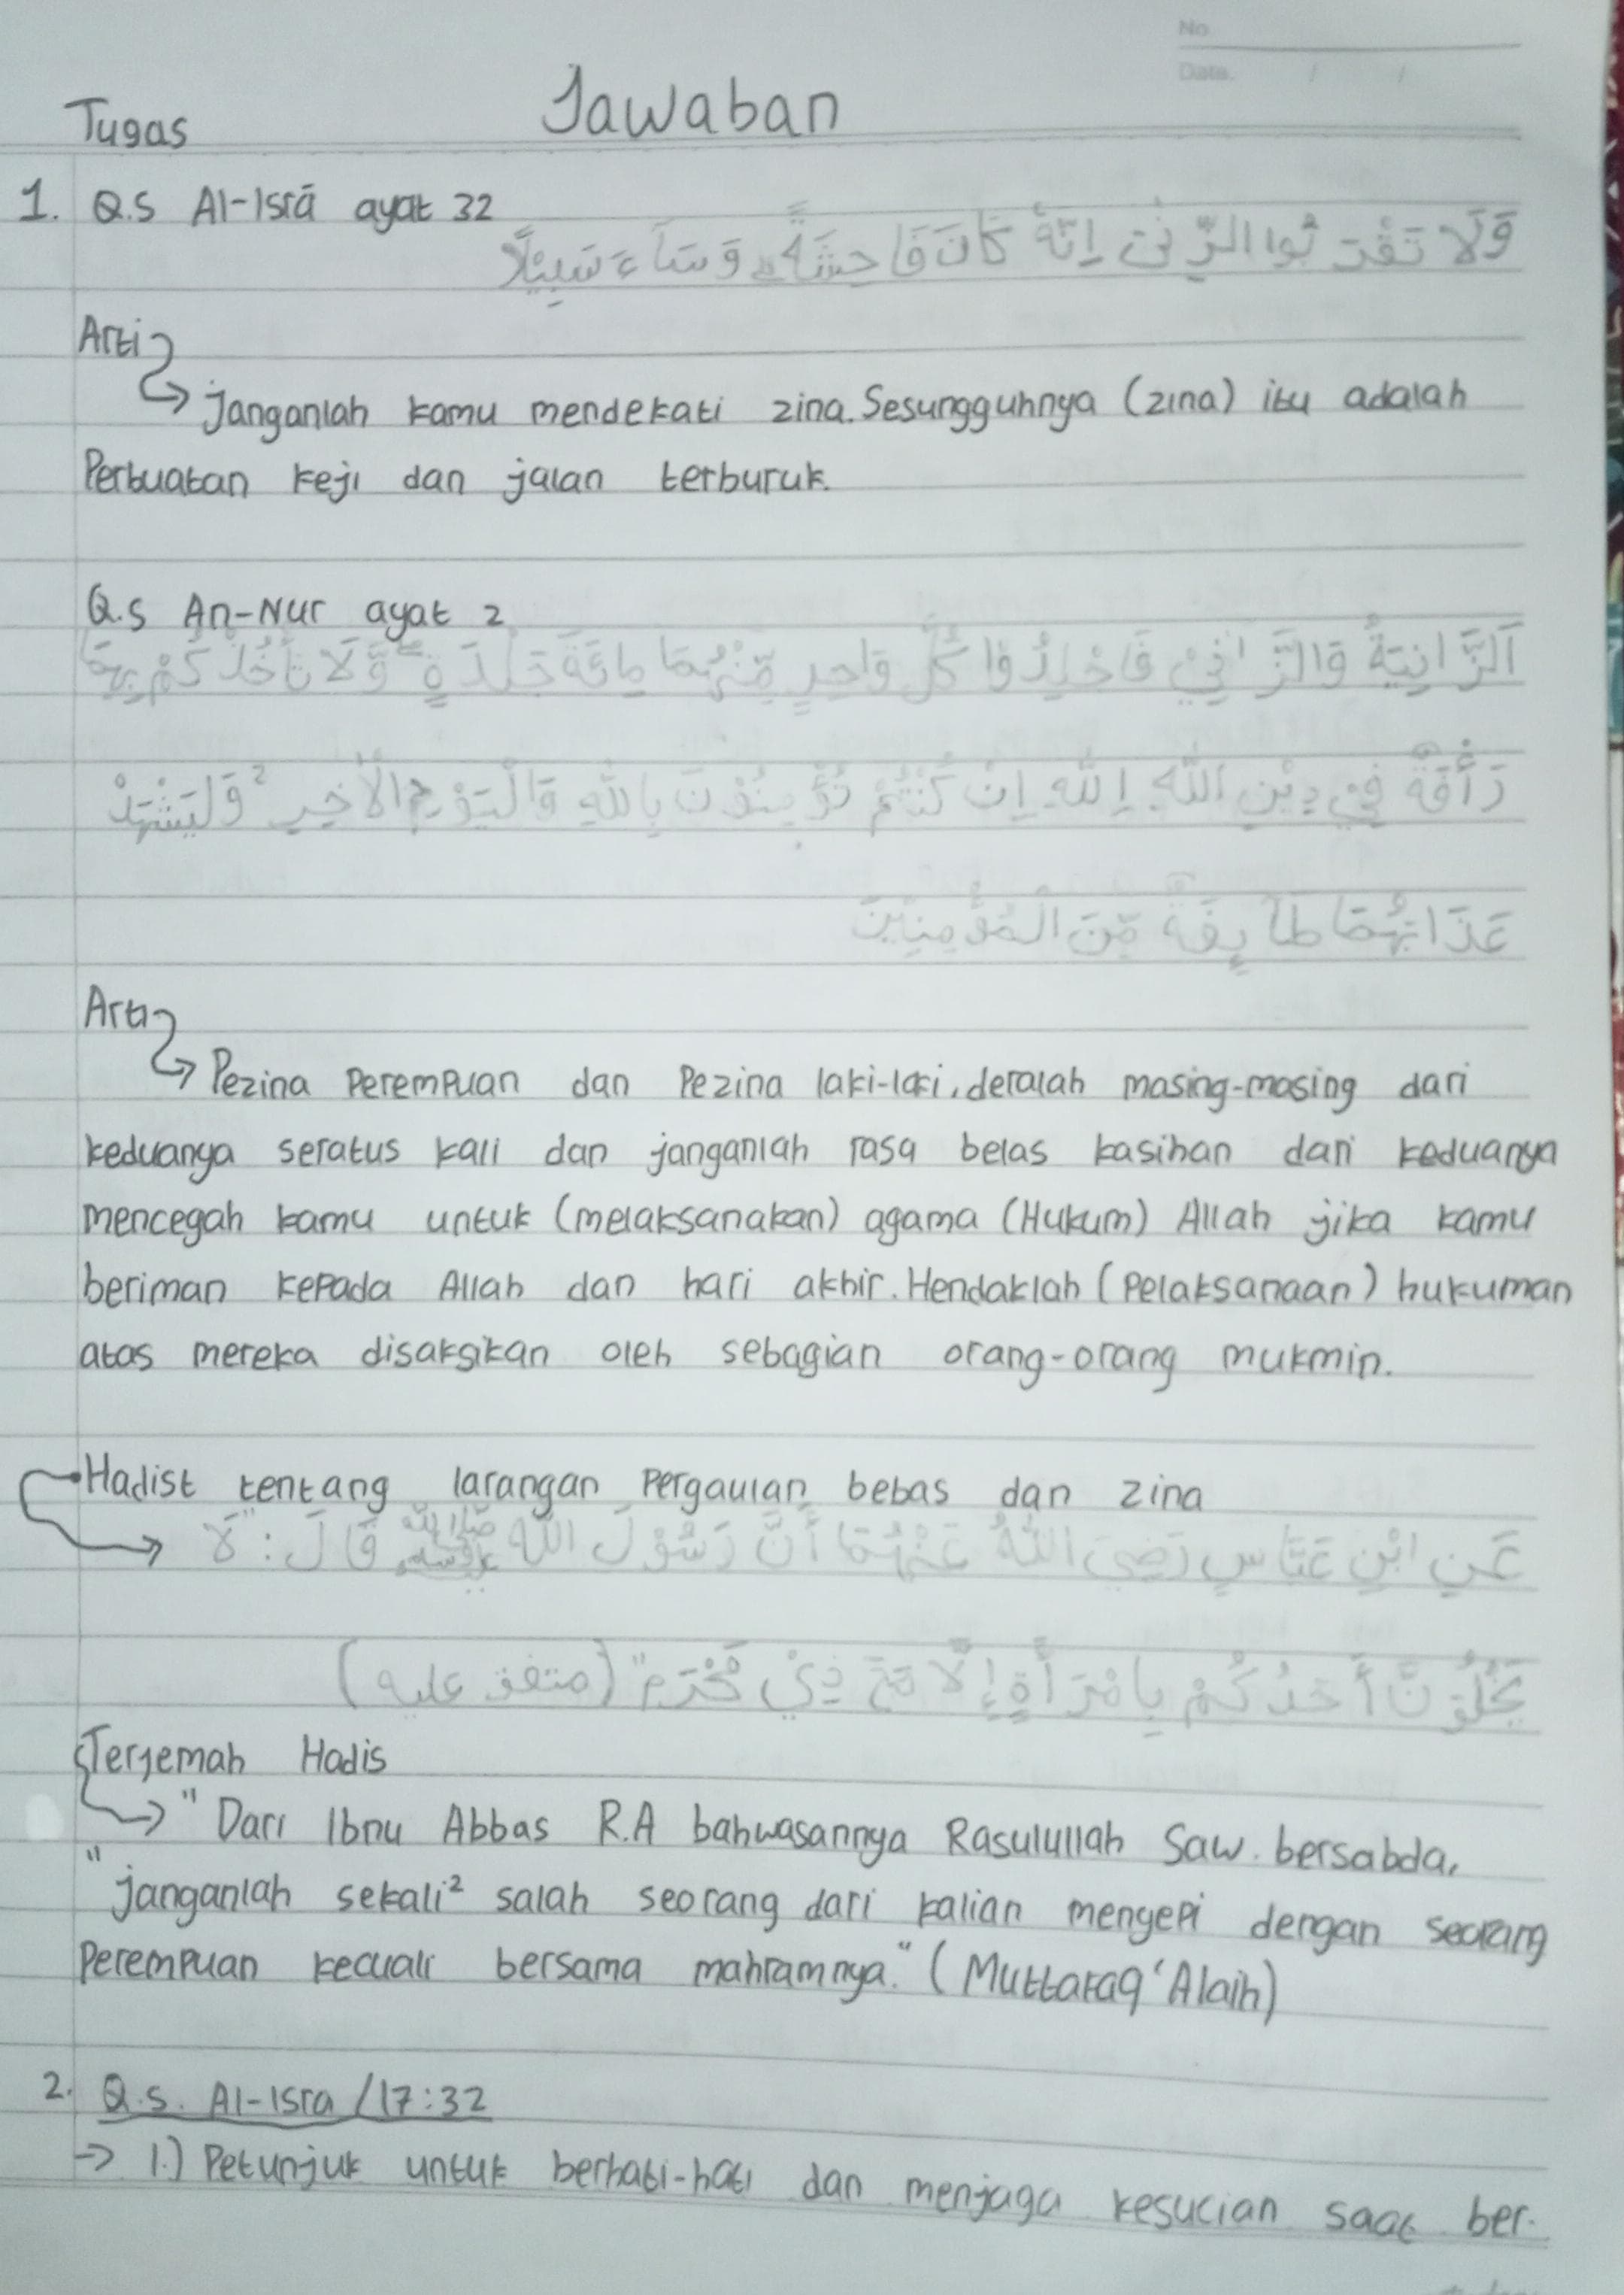 No
Date. / /
Tugas Jawaban
1. Q.S Al-Isrā ayat 32
وَلَا تَقْرَبُوا الزِّنٰى اِنَّهٗ كَانَ فَاحِشَةً ۗ وَسَاۤءَ سَبِيْلًا
Arti
→ janganlah kamu mendekati zina. Sesungguhnya (zina) itu adalah
Perbuatan keji dan jalan terburuk.
Q.S An-Nur ayat 2
اَلزَّانِيَةُ وَالزَّانِيْ فَاجْلِدُوْا كُلَّ وَاحِدٍ مِّنْهُمَا مِائَةَ جَلْدَةٍ ۖ وَّلَا تَأْخُذْكُمْ بِهِمَا
رَأْفَةٌ فِيْ دِيْنِ اللّٰهِ اِللّٰهِ اِنْ كُنْتُمْ تُؤْمِنُوْنَ بِاللّٰهِ وَالْيَوْمِ الْاٰخِرِ ۚ وَلْيَشْهَدْ
عَذَابَهُمَا طَاۤىِٕفَةٌ مِّنَ الْمُؤْمِنِيْنَ
Arti
→ Pezina Perempuan dan Pezina laki-laki, deralah masing-masing dari
keduanya seratus kali dan janganlah rasa belas kasihan dari keduanya
mencegah kamu untuk (melaksanakan) agama (Hukum) Allah jika kamu
beriman kepada Allah dan hari akhir. Hendaklah (Pelaksanaan) hukuman
atas mereka disaksikan oleh sebagian orang-orang mukmin.
Hadist tentang larangan Pergaulan bebas dan zina
→ عَنِ ابْنِ عَبَّاسٍ رَضِيَ اللّٰهُ عَنْهُمَا أَنَّ رَسُوْلَ اللّٰهِ صَلَّى اللّٰهُ عَلَيْهِ وَسَلَّمَ قَالَ: "لَا
يَخْلُوَنَّ أَحَدُكُمْ بِامْرَأَةٍ إِلَّا مَعَ ذِيْ مَحْرَمٍ" (متفق عليه)
Terjemah Hadis
→ "Dari Ibnu Abbas R.A bahwasannya Rasulullah Saw. bersabda,
"janganlah sekali² salah seorang dari kalian menyepi dengan seorang
Perempuan kecuali bersama mahramnya." (Muttafaq 'Alaih)
2. Q.S. Al-Isra /17:32
→ 1.) Petunjuk untuk berhati-hati dan menjaga kesucian saat ber-